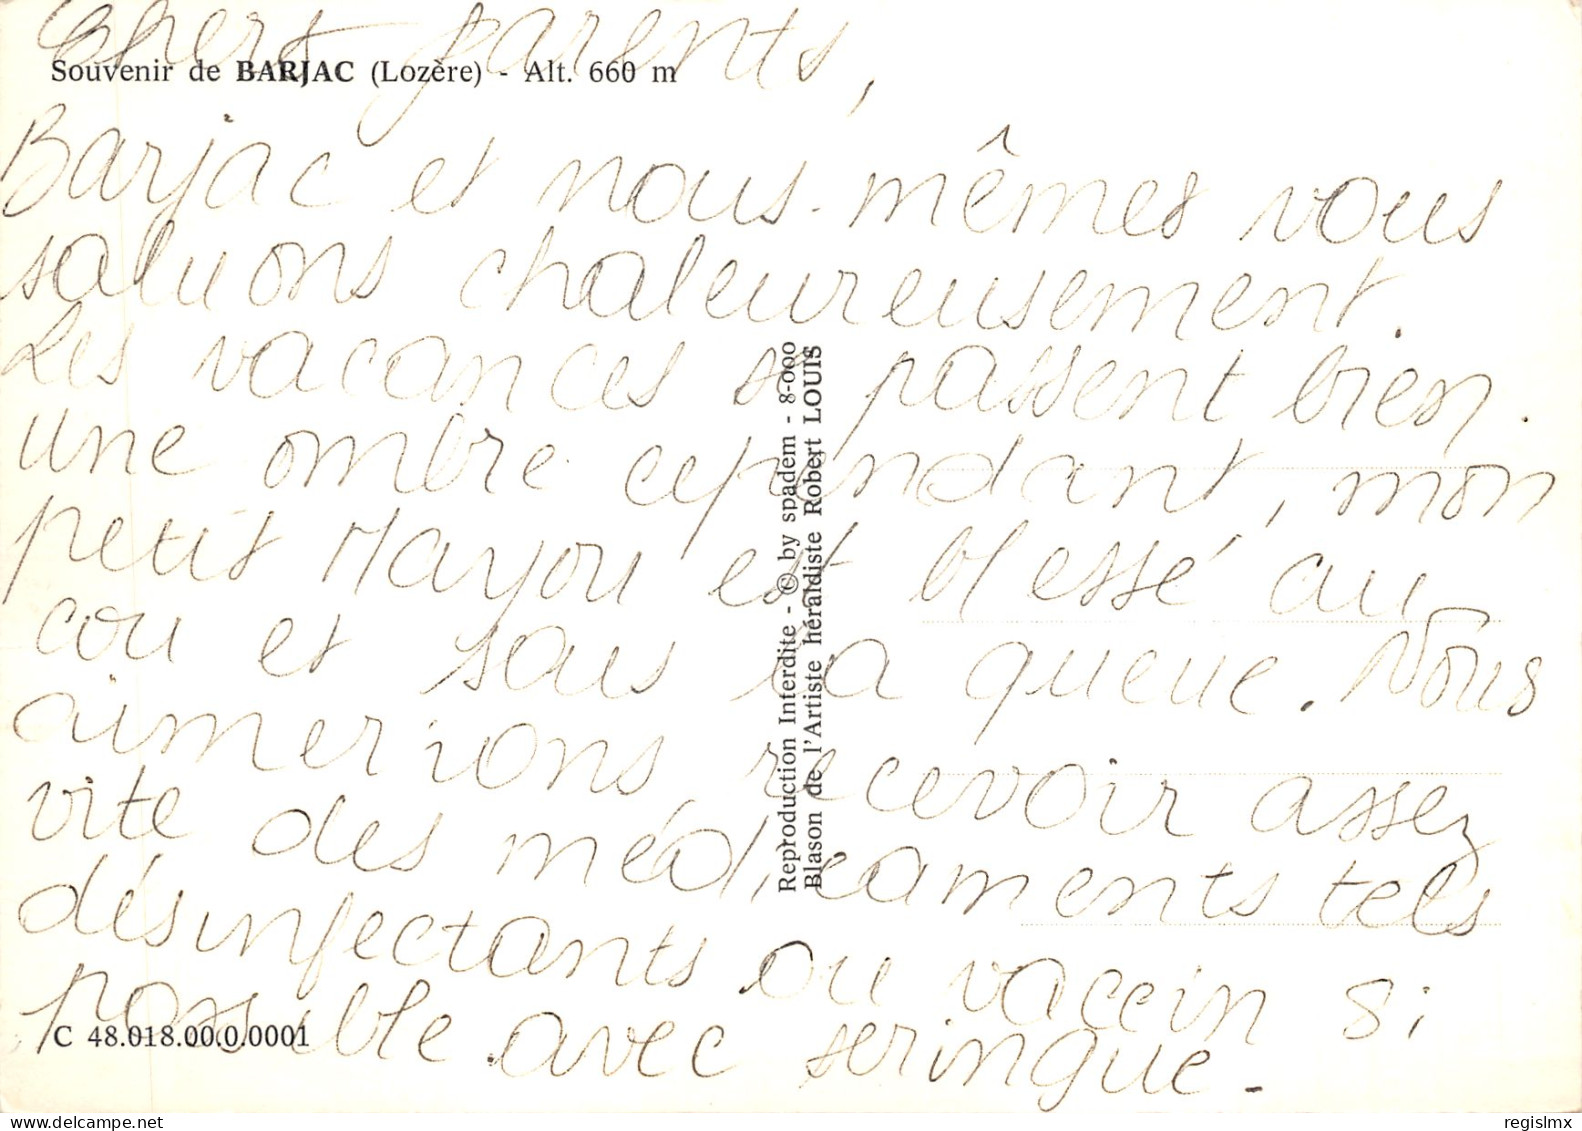 Chers parents,
Souvenir de BARJAC (Lozère) - Alt. 660 m
Barjac et nous-mêmes vous
saluons chaleureusement.
Les vacances se passent bien.
une ombre cependant, mon
petit Mayou est blessé au
cou et sous la queue. Nous
aimerions recevoir assez
vite des médicaments tels
désinfectants ou vaccin si
possible avec seringue.
C 48.018.00.0.0001
Reproduction Interdite - © by spadem - 8-000
Blason de l'Artiste héraldiste Robert LOUIS
regislmx